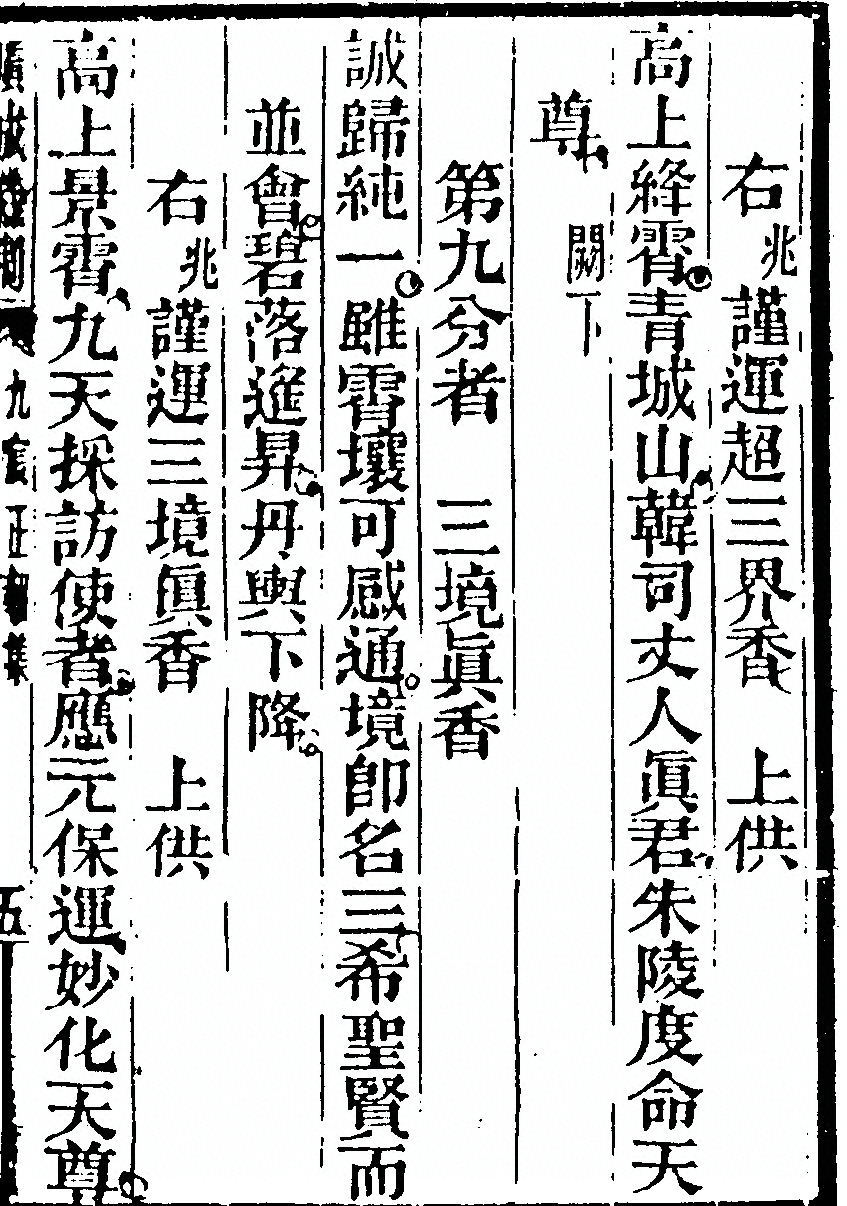 右兆謹運超三界香　上供
高上絳霄青城山韓司丈人眞君朱陵度命天
尊　闕下
第九分者　三境眞香
誠歸純一雖霄壤可感通境卽名三希聖賢而
並會碧落進昇丹輿下降
右兆謹運三境眞香　上供
高上景霄九天採訪使者應元保運妙化天尊
九宸正朝集
五